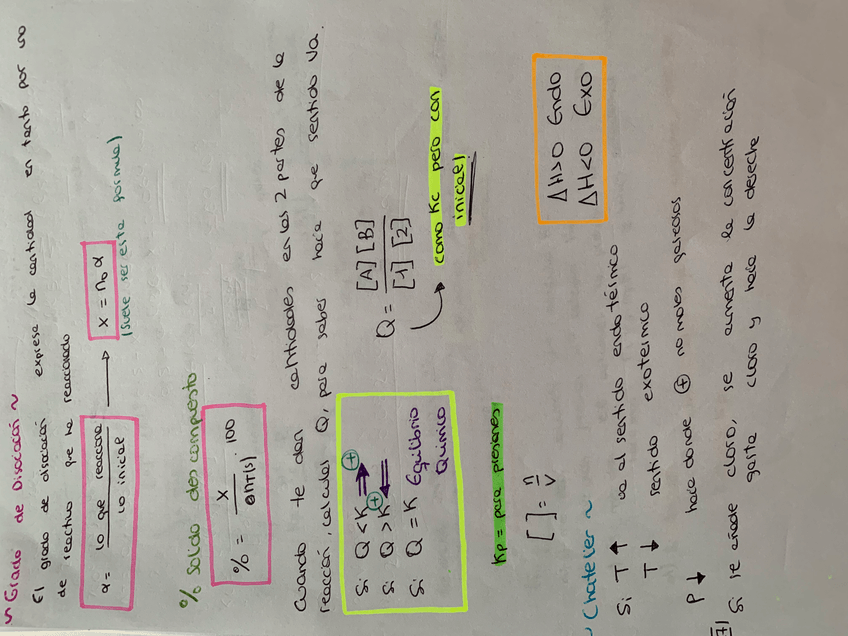 ~ Grado de Disociación ~
El grado de disociación expresa la cantidad en tanto por uno
de reactivo que ha reaccionado
α = lo que reacciona / lo inicial → x = n₀ α
(suele ser esta formula)
% Solido descompuesto
% = x / n(s) · 100
Cuando te dan cantidades en las 2 partes de la
reacción, calculas Q, para saber hacia que sentido va.
Si Q < K ⊕ ⇒
Si Q > K ⊕ ⇐
Si Q = K Equilibrio
Químico
Q = [A] [B] / [1] [2]
como Kc pero con
inicial
Kp = para presiones
[ ] = n / V
~ Chatelier ~
ΔH>0 Endo
ΔH<0 Exo
Si T ↑ va al sentido endotérmico
T ↓ sentido exotermico
P ↓ hacia donde ⊕ no moles gaseosos
Si se añade cloro, se aumenta la concentración
gasta cloro y hacia la derecha